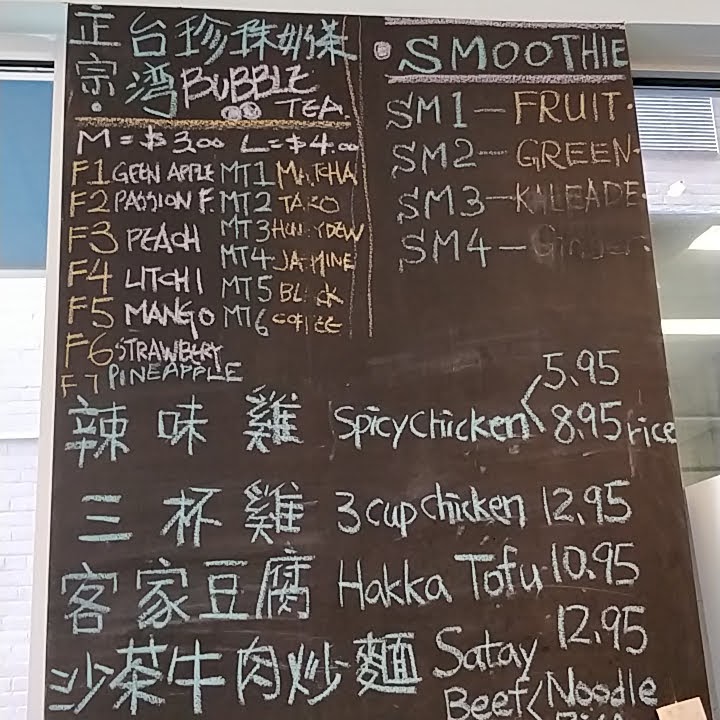 正宗·台灣珍珠奶茶
BUBBLE TEA
M = $3.00 L = $4.00
F1 GEEN APPLE MT1 MATCHA
F2 PASSION F. MT2 TARO
F3 PEACH MT3 HONEYDEW
F4 LITCHI MT4 JASMINE
F5 MANGO MT5 BLACK
F6 STRAWBERY MT6 COFFEE
F7 PINEAPPLE
SMOOTHIE
SM1 - FRUIT.
SM2 - GREEN.
SM3 - KALEADE.
SM4 - Ginger.
辣味雞 Spicy chicken < 5.95
8.95 rice
三杯雞 3 cup chicken 12.95
客家豆腐 Hakka Tofu 10.95
沙茶牛肉炒麵 Satay 12.95
Beef < Noodle